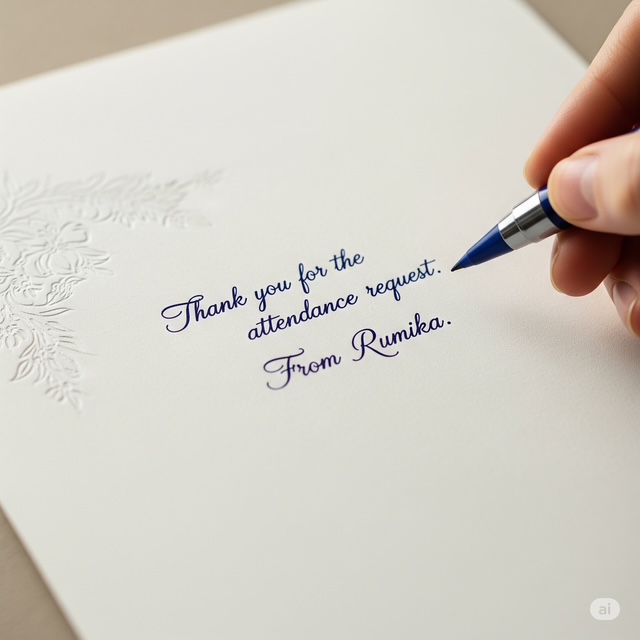 Thank you for the
attendance request.
From Rumika.
ai